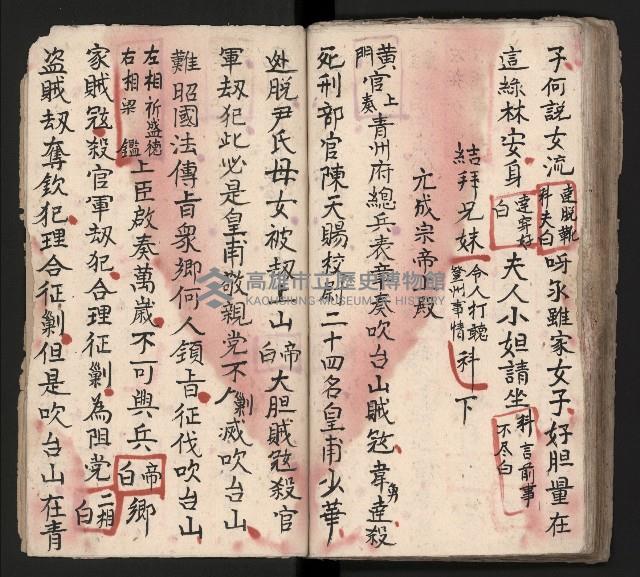 子何説女流 達脱靴 科夫白 呀氺雖家女子好胆量在
這綠林安身 達穿好 白 夫人小姐請坐 科言前事 不尽白
結拜兄妹 令人打聽 登州事情 科 下
元成宗帝 殿
黃門官 上奏 青州府總兵表章奏吹台山賊寇韋勇達殺
死刑部官陳天賜校尉二十四名皇甫少華
处脱尹氏母女被刼上山 帝白 大胆賊寇殺官
軍刼犯此必是皇甫敬親党不人剿滅吹台山
難昭國法傳旨衆鄉何人領旨征伐吹台山
左相祈盛德 右相梁鑑 上臣啟奏萬歲不可興兵 帝白 鄉
家賊寇殺官軍刼犯合理征剿為阻党 二相白
盗賊刼奪欽犯理合征剿但是吹台山在青
高雄市立歷史博物館
KAOHSIUNG MUSEUM OF HISTORY